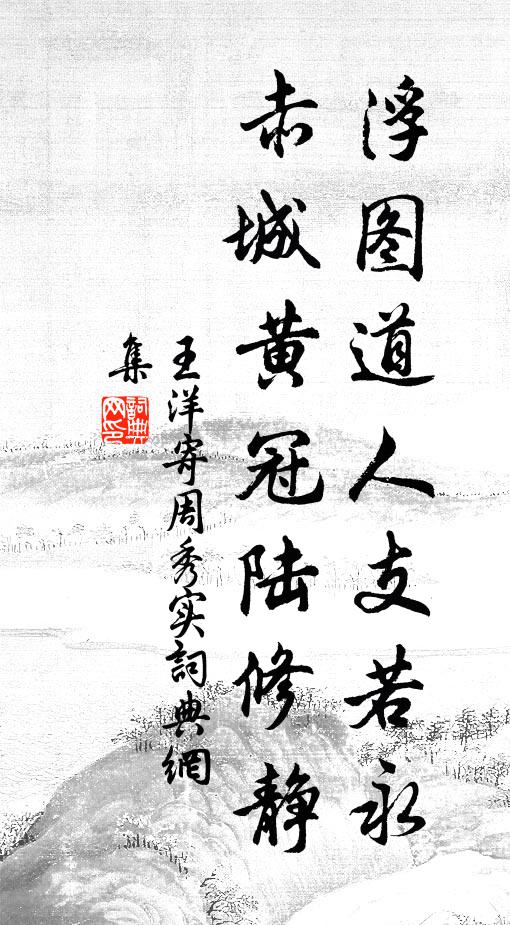 浮图道人支若永
赤城黄冠陆修静
王洋寄周秀实詞典網
集
詞典网印